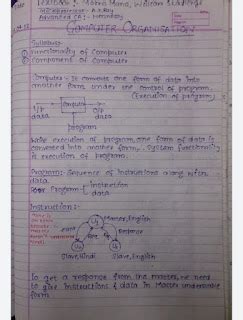 COMPUTER ORGANISATION
Syllabus
Functionality of Computer
Component of Computer
Computer:- It converts one form of data into
another form under the control of program.
(Execution of program)
I/P Computer O/P
data data
program
execution of program, one form of data is
converted into another form. System functionality
is execution of program.
Program:- Sequence of Instructions along with
data.
Program instruction
data
Instruction:-
U1 Master, English
Response
U2 U3
Slave, Hindi Slave, English
To get a response from the master, we need
to give instructions & data in Master understandable
form